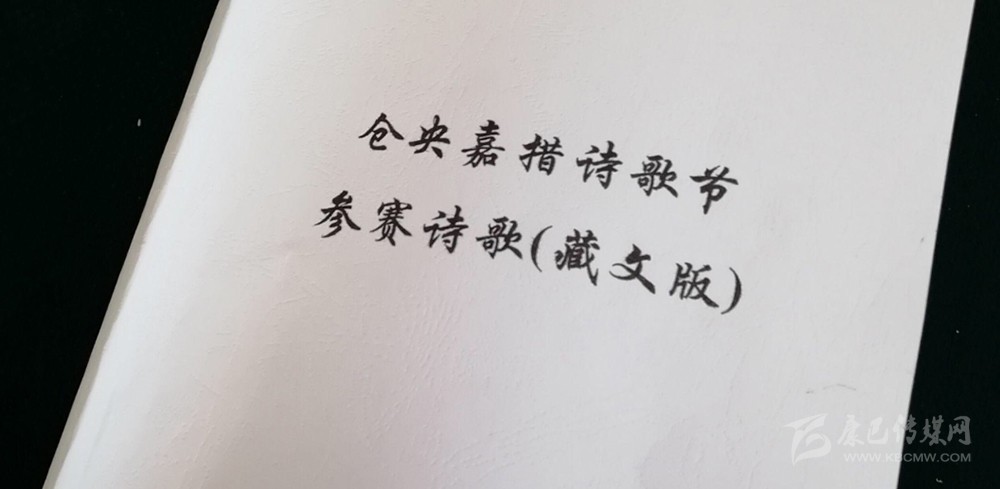 仓央嘉措诗歌节
参赛诗歌(藏文版)
康巴传媒网
WWW.KBCMW.COM